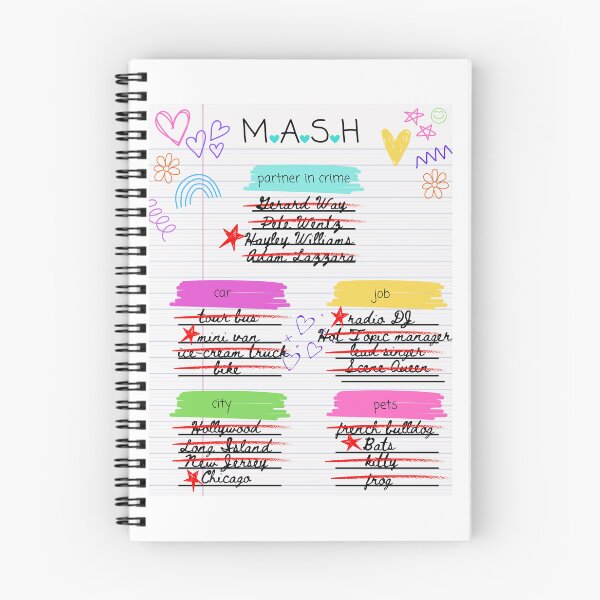 M.A.S.H
partner in crime
Gerard Way
Pete Wentz
Hayley Williams
Adam Lazzara
car
tour bus
mini van
ice-cream truck
bike
job
radio DJ
Hot Topic manager
lead singer
Scene Queen
city
Hollywood
Long Island
New Jersey
Chicago
pets
french bulldog
Bats
kitty
frog